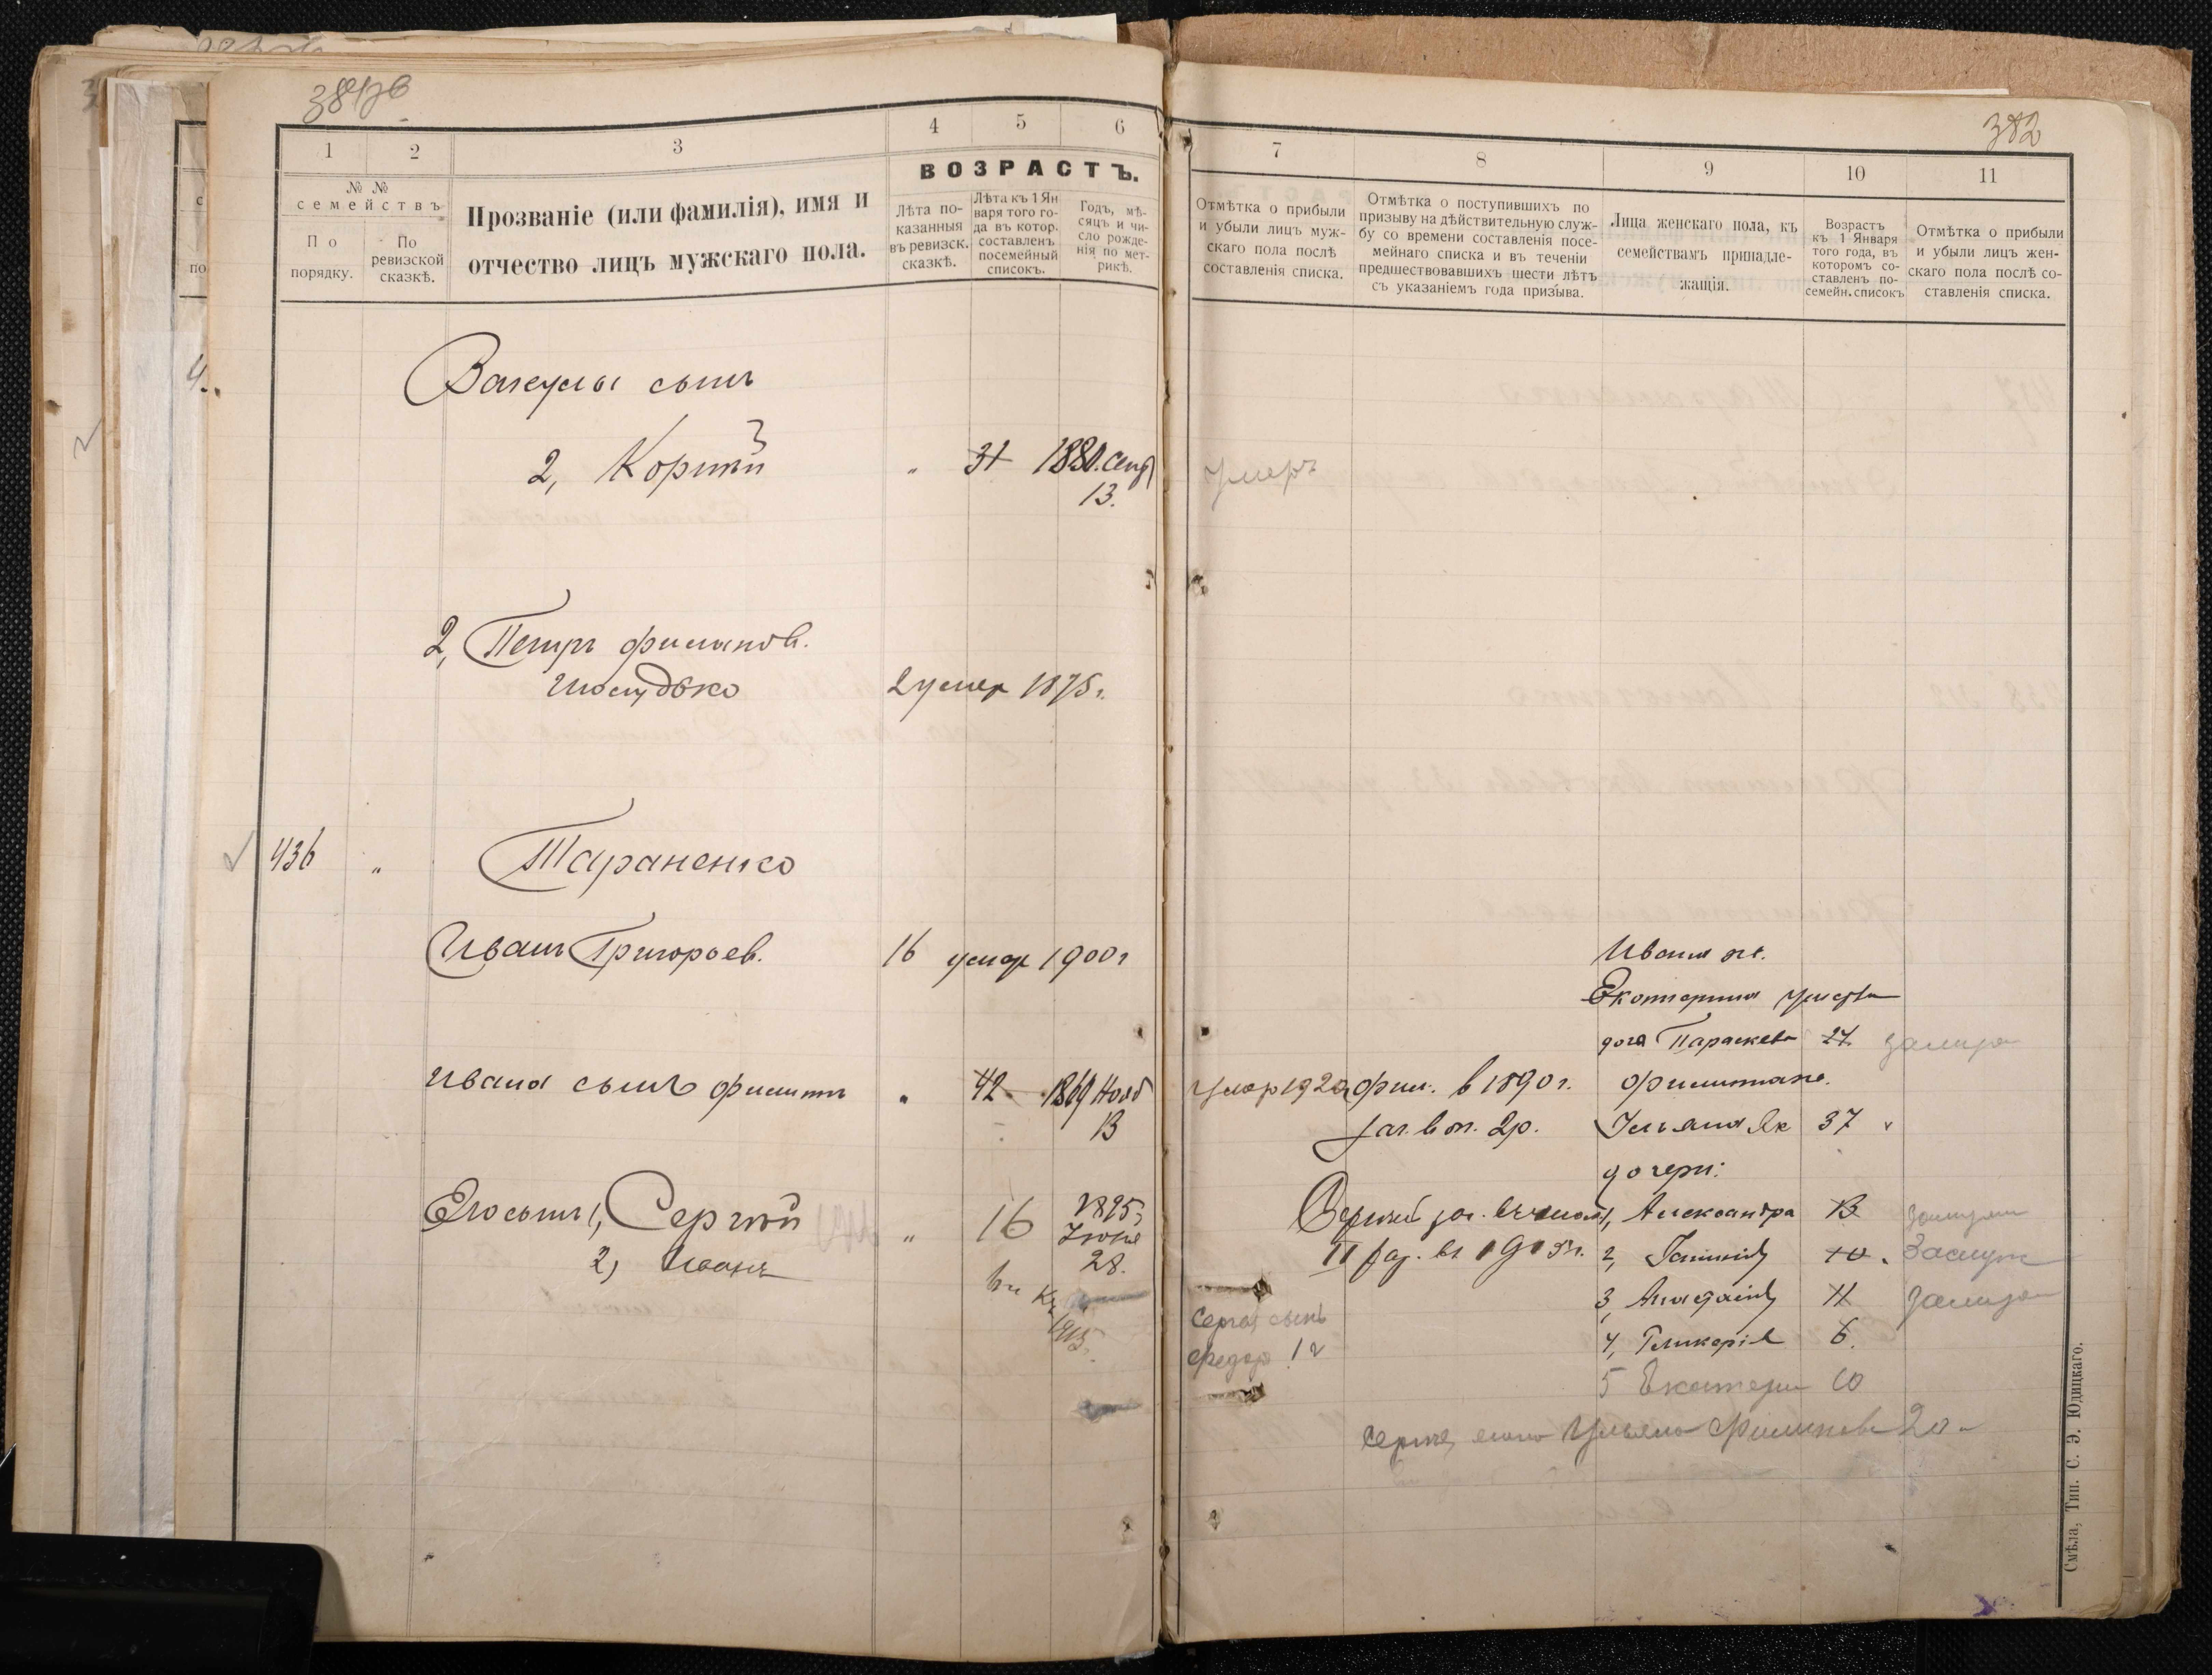 382
1
2
3
4
5
6
№ №
семействъ
По порядку.
По ревизской сказкѣ.
Прозваніе (или фамилія), имя и
отчество лицъ мужскаго пола.
ВОЗРАСТЪ.
Лѣта показанныя въ ревизск. сказкѣ.
Лѣта къ 1 Января того года въ котор. составленъ посемейный списокъ.
Годъ, мѣсяцъ и число рожденія по метрикѣ.
7
8
9
10
11
Отмѣтка о прибыли
и убыли лицъ муж-
скаго пола послѣ
составленія списка.
Отмѣтка о поступившихъ по
призыву на дѣйствительную служ-
бу со времени составленія посе-
мейнаго списка и въ теченіи
предшествовавшихъ шести лѣтъ
съ указаніемъ года призыва.
Лица женскаго пола, къ
семействамъ принадле-
жащія.
Возрастъ
къ 1 Января
того года, въ
которомъ со-
ставленъ по-
семейн. списокъ
Отмѣтка о прибыли
и убыли лицъ жен-
скаго пола послѣ со-
ставленія списка.
Вакулы сынъ
2, Корній " 31 1880. Сент умеръ
13.
2, Петръ Филипов.
2 умер 1875 г.
436 " Тараненко
Иванъ Григорьев. 16 умер 1900 г Ивана ж.
Екатерина умерла
доч Параскева 27
Ивана сынъ Филипъ " 42 1869 Нояб умер 1920 Фил. в 1890 г. Филипа ж.
13 зач. в оп. 2р. Ульяна Як 37
дочери:
Его сынъ 1, Сергѣй " 16 1895 г Сергей зач. 1, Александра 13
2, Иванъ Іюня 28. II раз. въ 1915 г. 2, 10. Замуж
3, 11
1915
Сергея сынъ
Федор 12
4, Гликерія 6.
5 Екатери 10
Сергея жена Ульяна Филипова 20
Смѣла, Тип. С. Э. Юдицкаго.